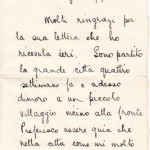 Molti ringrazi per
la sua lettera che ho
ricevuta ieri. Sono partito
la grande città quattro
settimane fa e adesso
dimoro a un piccolo
villaggio vicino alla fronte
Preferisco essere quia che
nella città come mi molto